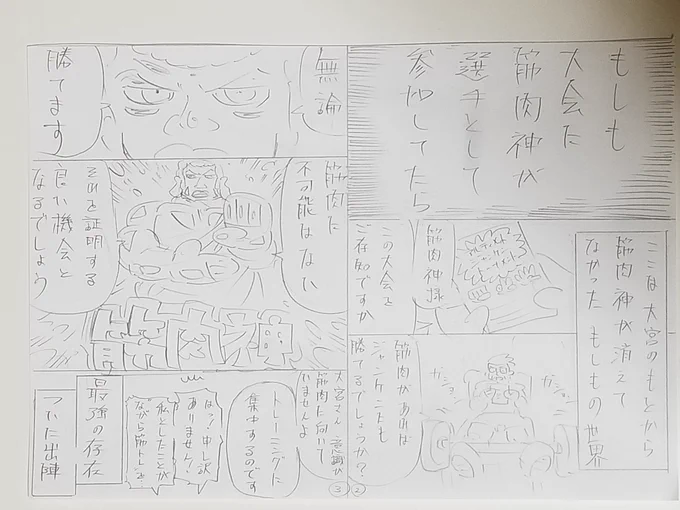 もしも
大会に
筋肉神が
選手として
参加してたら
ここは大宮のもとから
筋肉神が消えて
なかったもしもの世界
筋肉神様
この大会を
ご存知ですか
筋肉があれば
ジャンケンにも
勝てるでしょうか?
ガショ
ガショ
②
無論
勝てます
筋肉に
不可能はない
それを証明する
良い機会と
なるでしょう
筋肉神
大宮さん 意識が
筋肉に向いて
いませんよ
トレーニングに
集中するのです
はっ!申し訳
ありません!
私としたことが
ながら筋トレを…
最強の存在
ついに出陣
③